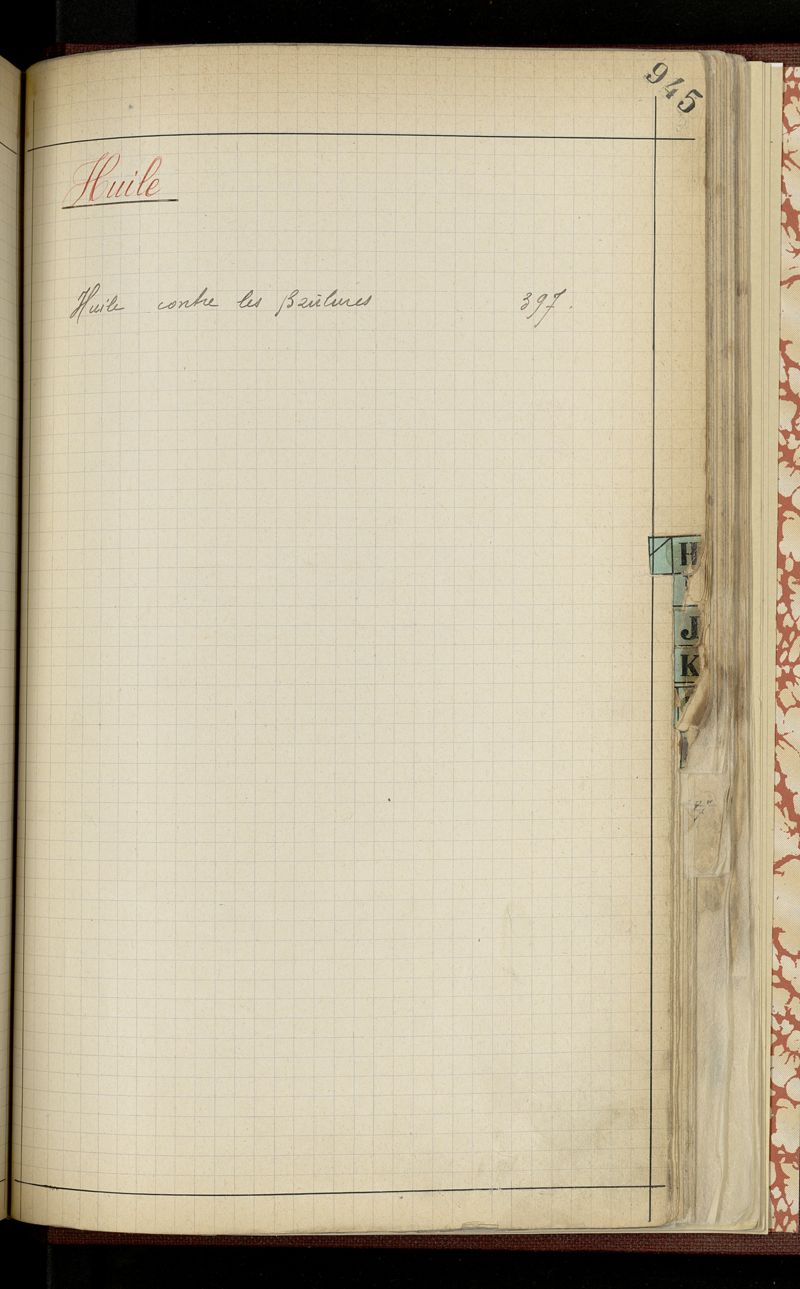 945
Huile
Huile contre les Brûlures 397.
H
J
K